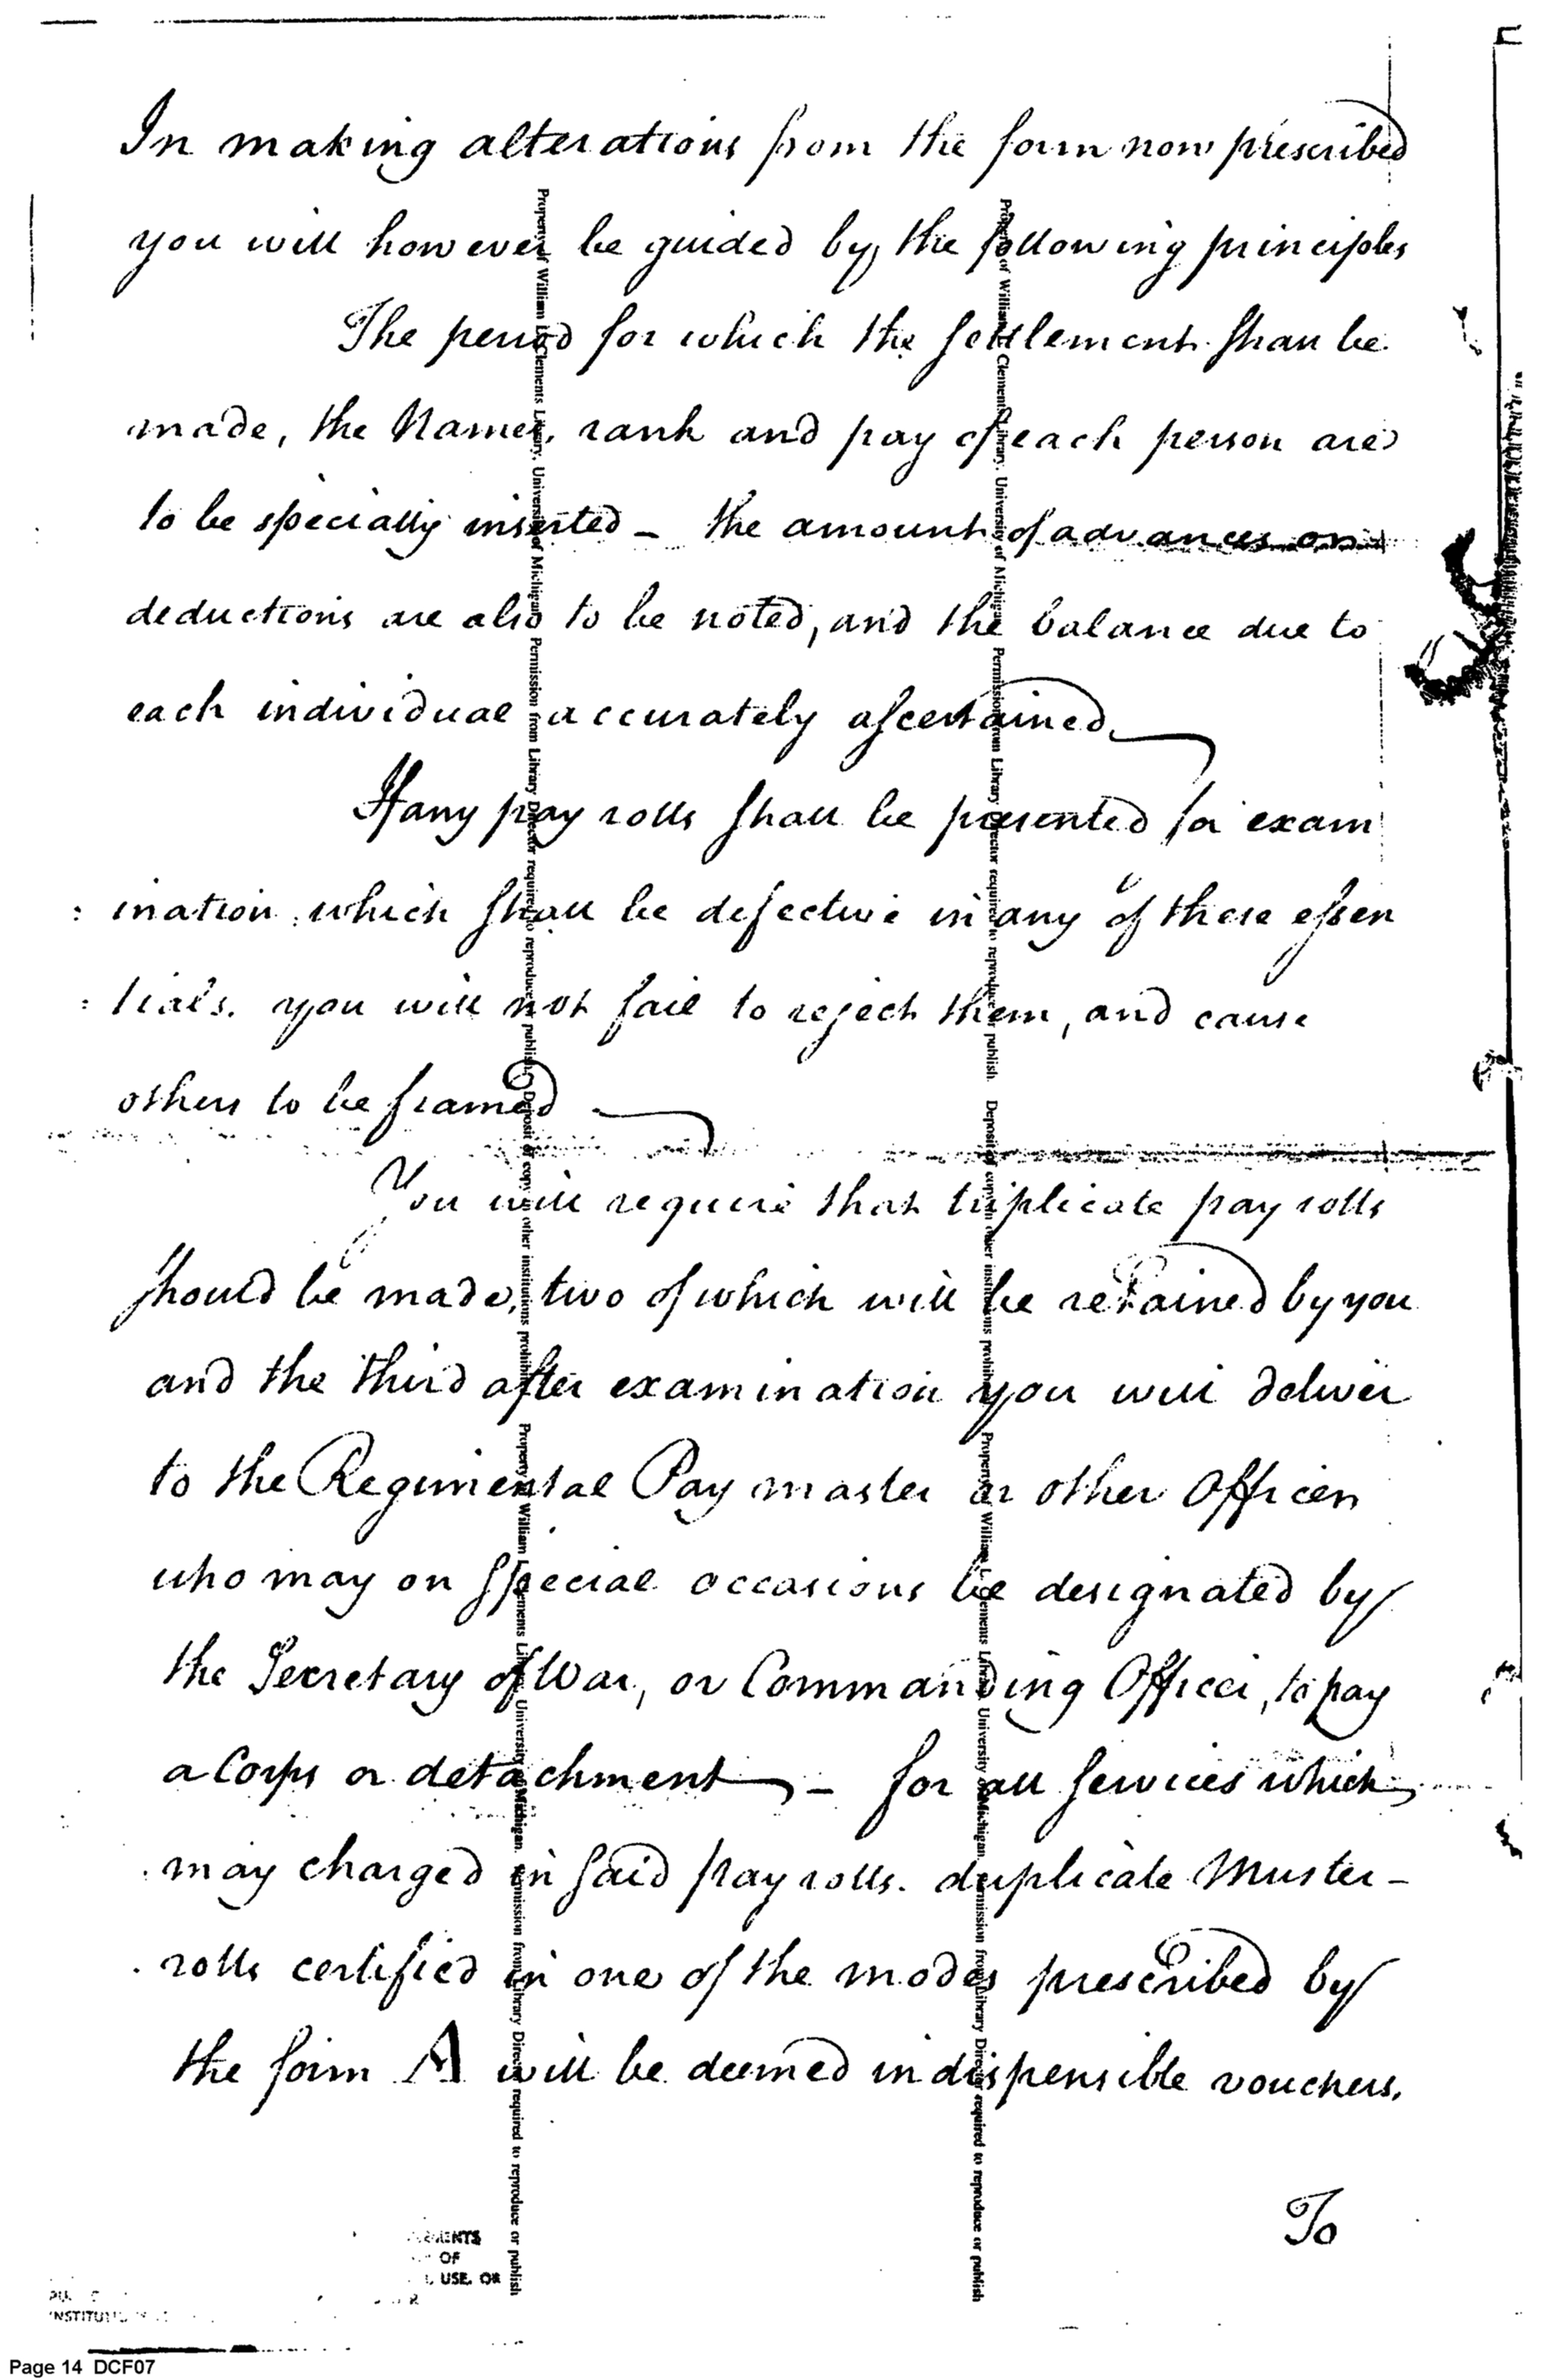 In making alterations from the form now prescribed
you will however be guided by the following principles
The period for which the settlement shall be
made, the Names, rank and pay of each person are
to be specially inserted – the amount of advances or
deductions are also to be noted, and the balance due to
each individual accurately ascertained
If any pay rolls shall be presented for exam
: ination which shall be defective in any of these essen
: tials. you will not fail to reject them, and cause
others to be framed
You will require that triplicate pay rolls
should be made, two of which will be retained by you
and the third after examination you will deliver
to the Regimental Pay master or other Officer
who may on special occasions be designated by
the Secretary of War, or Commanding Officer, to pay
a Corps or detachment – for all services which
may charged in said pay rolls. duplicate Muster-
rolls certified in one of the modes prescribed by
the form A will be deemed indispensible vouchers.
To
Property of William L. Clements Library, University of Michigan. Permission from Library Director required to reproduce or publish. Deposit of copy in other institutions prohibited.
Property of William L. Clements Library, University of Michigan. Permission from Library Director required to reproduce or publish
Property of William L. Clements Library, University of Michigan. Permission from Library Director required to reproduce or publish. Deposit of copy in other institutions prohibited.
Property of William L. Clements Library, University of Michigan. Permission from Library Director required to reproduce or publish
OF
USE. OR
Page 14 DCF07